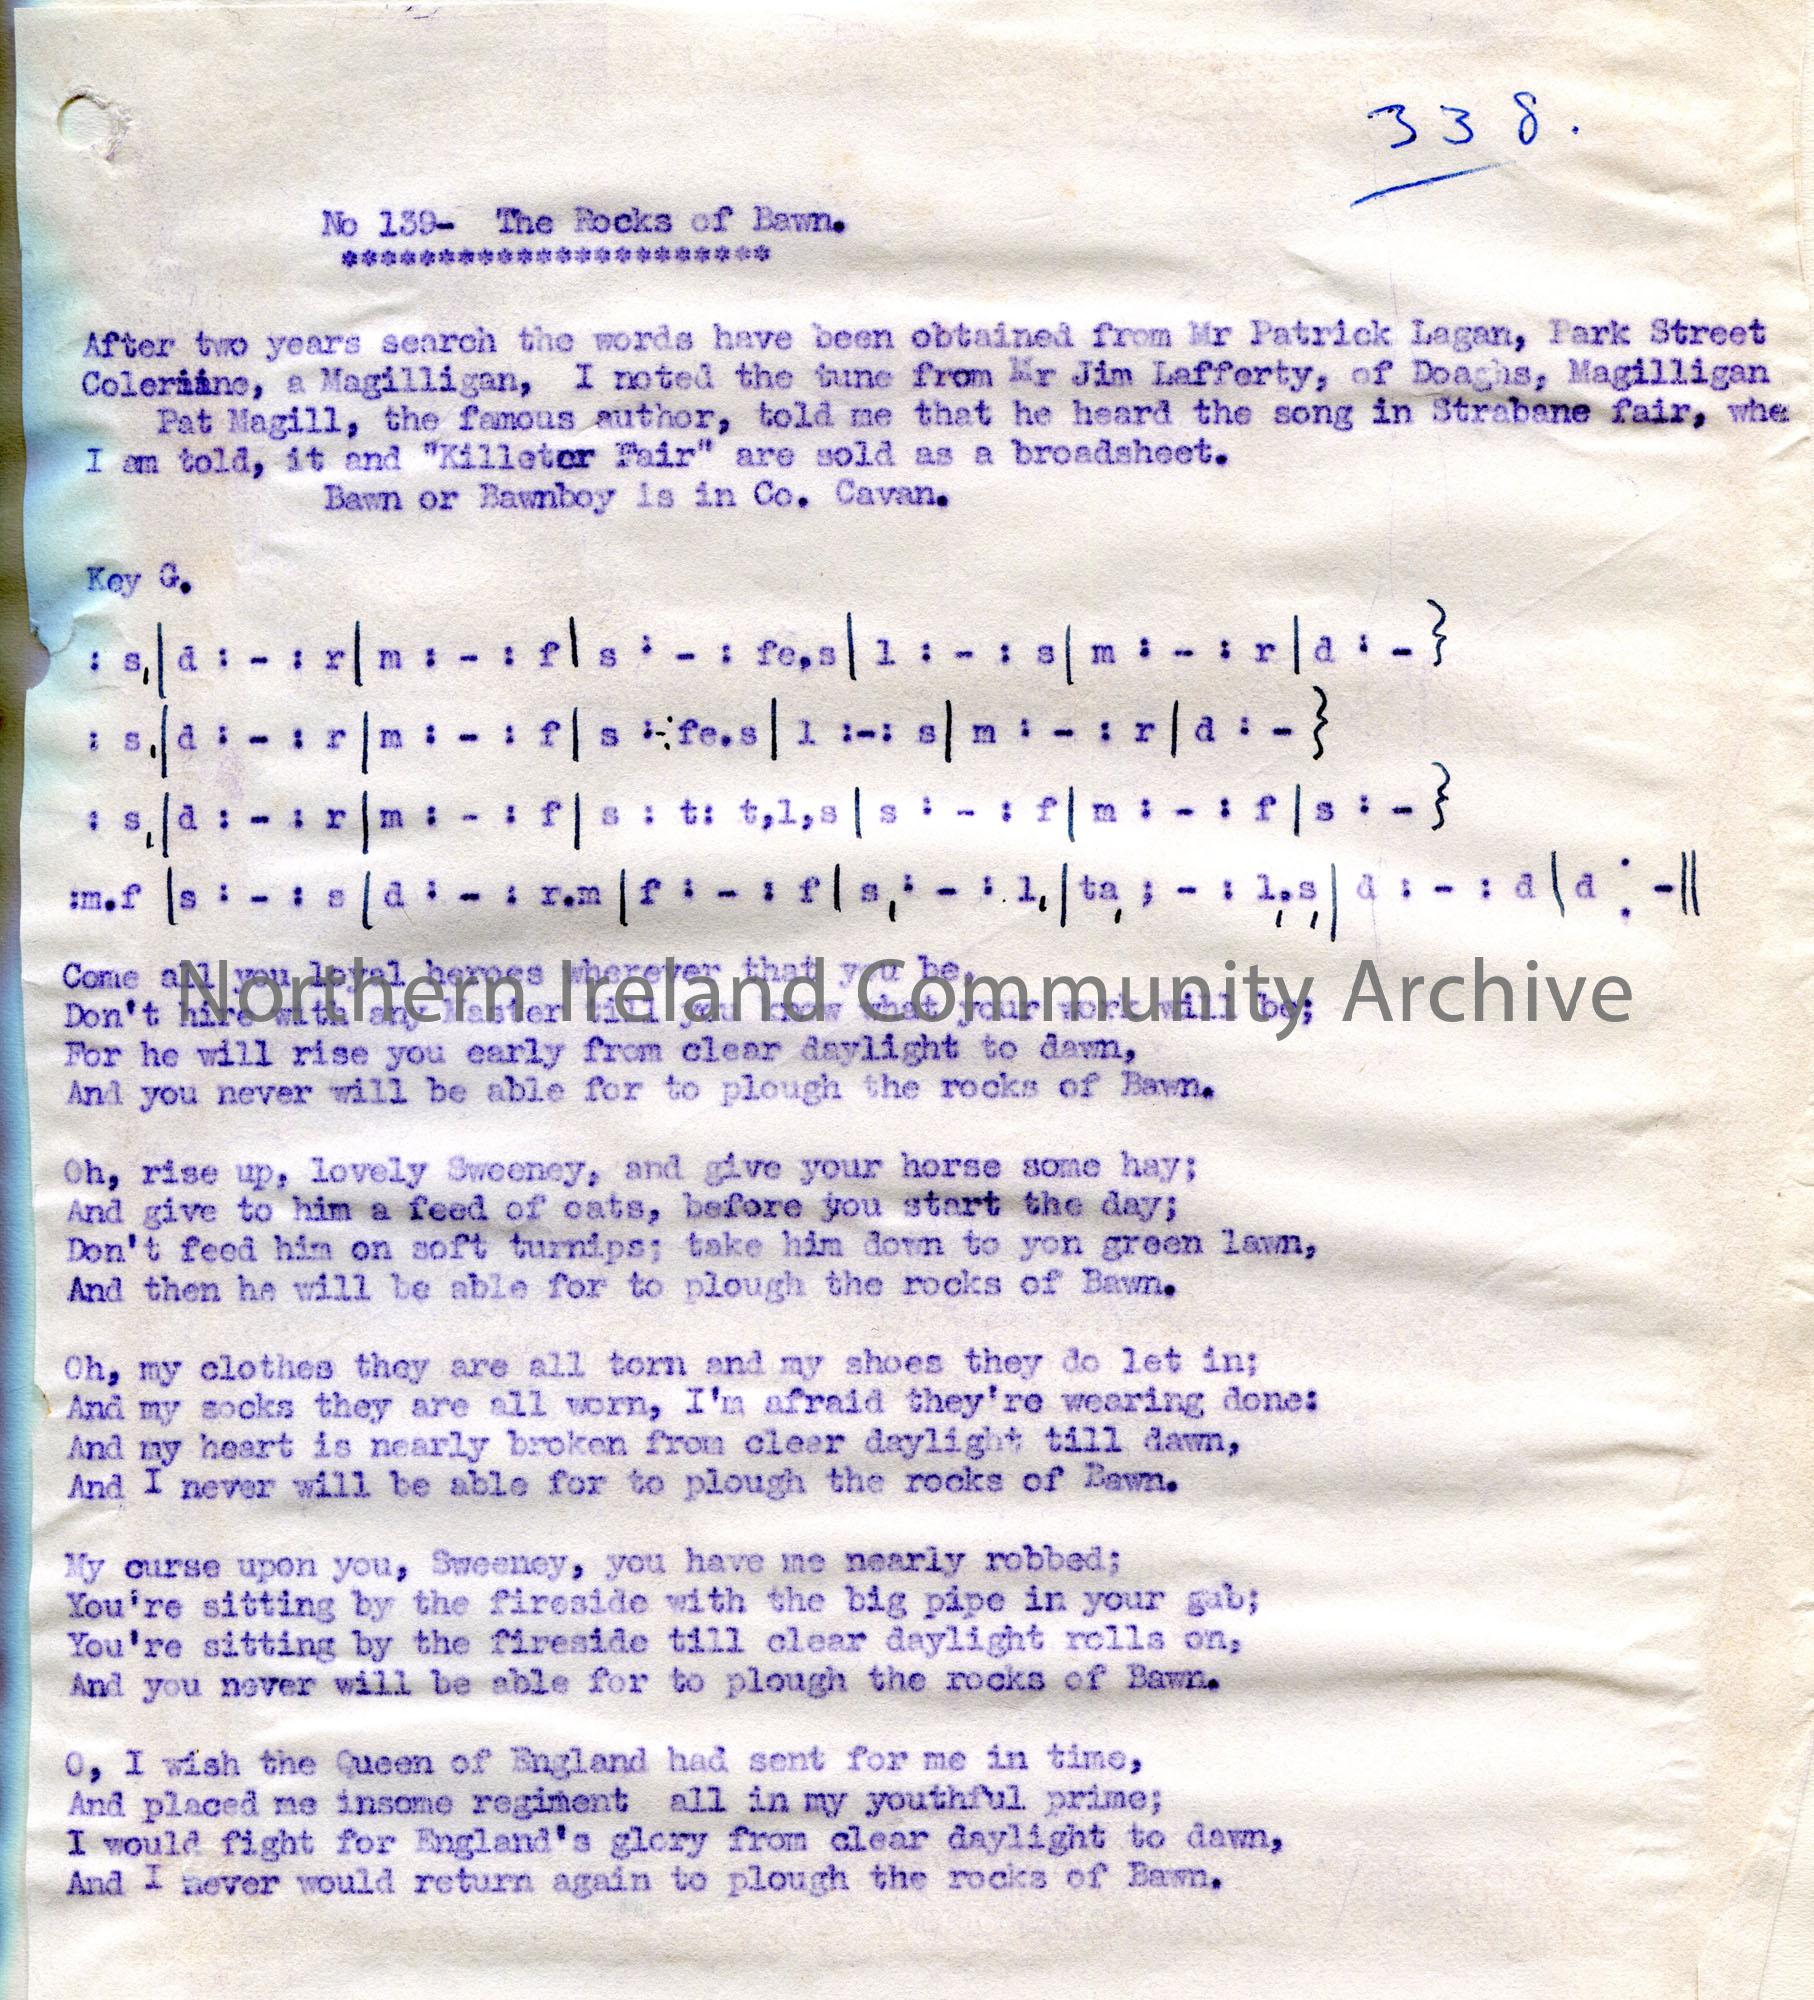 338.
No 139- The Rocks of Bawn.
**********************
After two years search the words have been obtained from Mr Patrick Lagan, Park Street
Coleriine, a Magilligan, I noted the tune from Mr Jim Lafferty, of Doaghs, Magilligan
Pat Magill, the famous author, told me that he heard the song in Strabane fair, whe
I am told, it and "Killetor Fair" are sold as a broadsheet.
Bawn or Bawnboy is in Co. Cavan.
Key G.
: s, | d : - : r | m : - : f | s : - : fe.s | l : - : s | m : - : r | d : - }
: s, | d : - : r | m : - : f | s : - : fe.s | l :-: s | m : - : r | d : - }
: s, | d : - : r | m : - : f | s : t: t,l,s | s : - : f | m : - : f | s : - }
:m.f | s : - : s | d : - : r.m | f : - : f | s, : - : l, | ta, ; - : l,.s, | d : - : d | d : - ||
Come all you loyal heroes wherever that you be,
Don't hire with any Master till you know what your work will be;
For he will rise you early from clear daylight to dawn,
And you never will be able for to plough the rocks of Bawn.
Oh, rise up, lovely Sweeney, and give your horse some hay;
And give to him a feed of oats, before you start the day;
Don't feed him on soft turnips; take him down to yon green lawn,
And then he will be able for to plough the rocks of Bawn.
Oh, my clothes they are all torn and my shoes they do let in;
And my socks they are all worn, I'm afraid they're wearing done:
And my heart is nearly broken from clear daylight till dawn,
And I never will be able for to plough the rocks of Bawn.
My curse upon you, Sweeney, you have me nearly robbed;
You're sitting by the fireside with the big pipe in your gab;
You're sitting by the fireside till clear daylight rolls on,
And you never will be able for to plough the rocks of Bawn.
O, I wish the Queen of England had sent for me in time,
And placed me insome regiment all in my youthful prime;
I would fight for England's glory from clear daylight to dawn,
And I never would return again to plough the rocks of Bawn.
Northern Ireland Community Archive